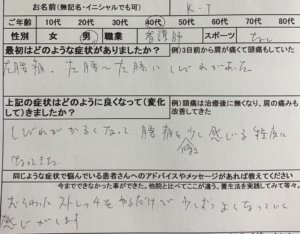 お名前(無記名・イニシャルでも可) K・T
ご年齢 10代 20代 30代 40代 50代 60代 70代 80代
性別 女 男 職業 看護師 スポーツ なし
最初はどのような症状がありましたか? 例)3日前から肩が痛くて頭も痛していた
左腰痛。左腰〜左膝に しびれがあった
上記の症状はどのように良くなって(変化して)きましたか? 例)頭痛は治療後に無くなり、肩の痛みも改善してきた
しびれがかるくなって、腰痛を少し感じる程度に
なってきた
同じような症状で悩んでいる患者さんへのアドバイスやメッセージがあれば教えて下さい
今までできなかった事ができた。他院と比べてここが違う。養生法を実践してみて等々。
ストレッチをやるだけで 少しずつよくなっていく
感じがします